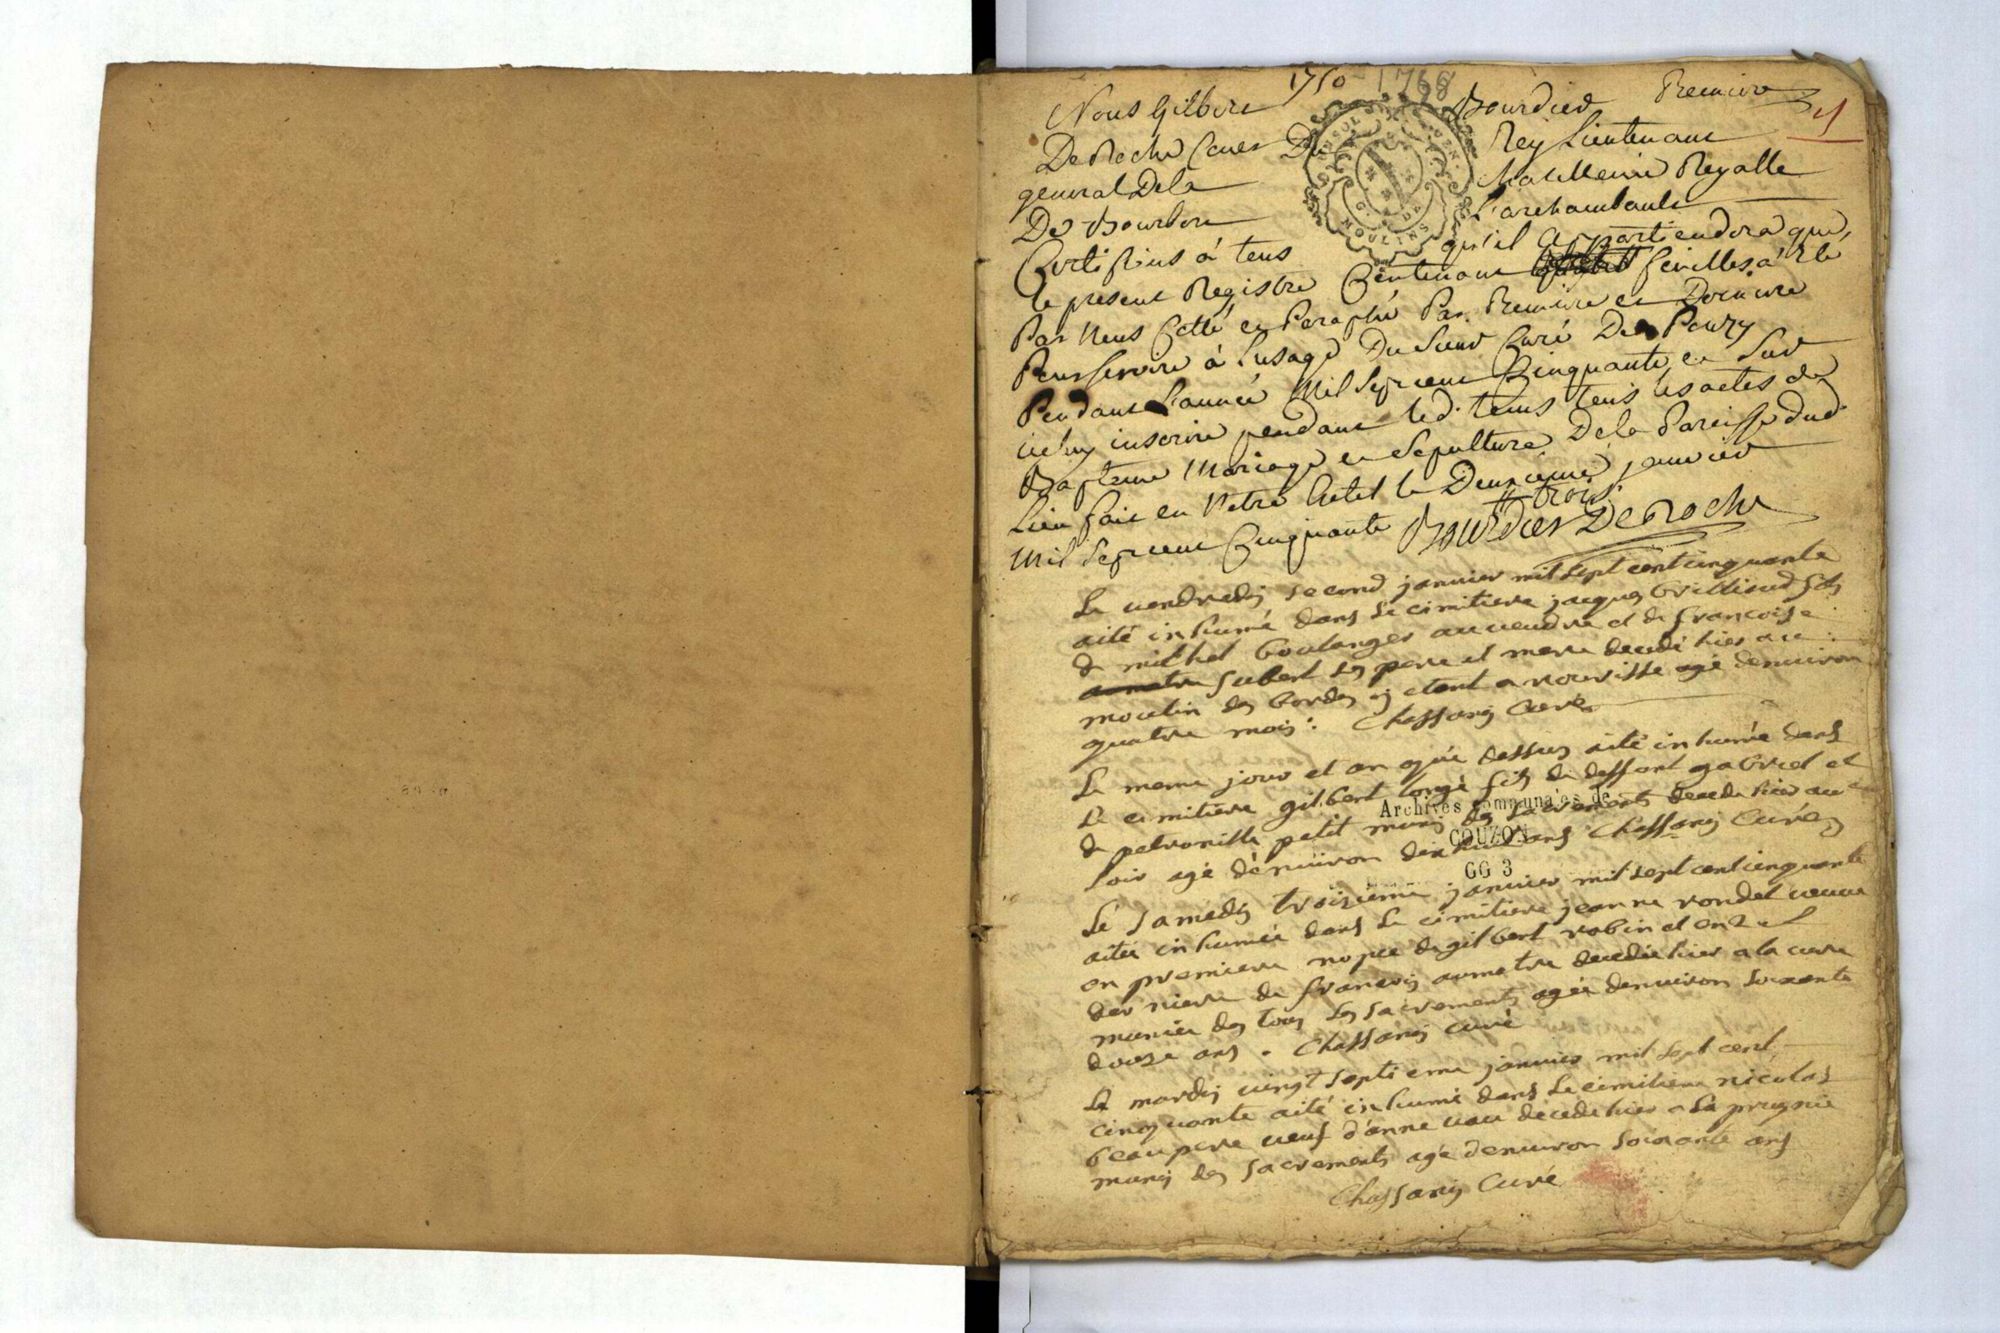 1750 - 1768
Nous Gilbert Bourdier Premiere
DeRoche Coner Du Roy Lieutenant
general Dela Chatelleinie Royalle
De Bourbon L'archambault
Certifions à tous qu'il apartiendora que,
le present Registre Contenant feuilles, a été
Par Nous Cotté et Paraphé Par Premiere et Derniere
Pour Servire à L'usage Du Sieur Curé De Pouzy
Pendant L'année Mil Sept cent Cinquante et Sur
iceluy inscrire pendant led. tems tous les actes de
Bapteme Mariage et Sepulture Dela Paroisse dud.
Lieu fait en Notre hotel le Deuxieme janvier
trois
Mil Sept cent Cinquante Bourdier DeRoche
Le vendredy second janvier mil sept cent cinquante
a été inhumé dans le cimitiere jacques Brilliaud fils
de michel boulanger au veudre et de francoise
aumetre Jubert ses pere et mere decedé hier au
moulin des bordes y etant a nourisse agé denuiron
quatre mois: Chassang Curé
Le meme jour et an que dessus a été inhumé dans
Le cimitiere gilbert longe fils de deffunt gabriel et
de petronille petit muny des sacrements decede hier au
soir agé dénuiron dix huit ans Chassang Curé
Archives communales de
COUZON
GG 3
Le samedy troizieme janvier mil sept cent cinquante
a été inhumée dans Le cimitiere jeanne rondet veuve
en premiere nopce de gilbert robin et en 2 et
der niere de francois aumetre decedée hier a la cure
munie des tous les sacrements agée denuiron soixante
douze ans. Chassang curé
Le mardy vingt septieme janvier mil sept cent
cinquante a été inhumé dans Le cimitiere nicolas
beaupere veuf d'anne vau decede hier a la prugnie
muny des sacrements agé denuiron soixante ans
Chassang Curé